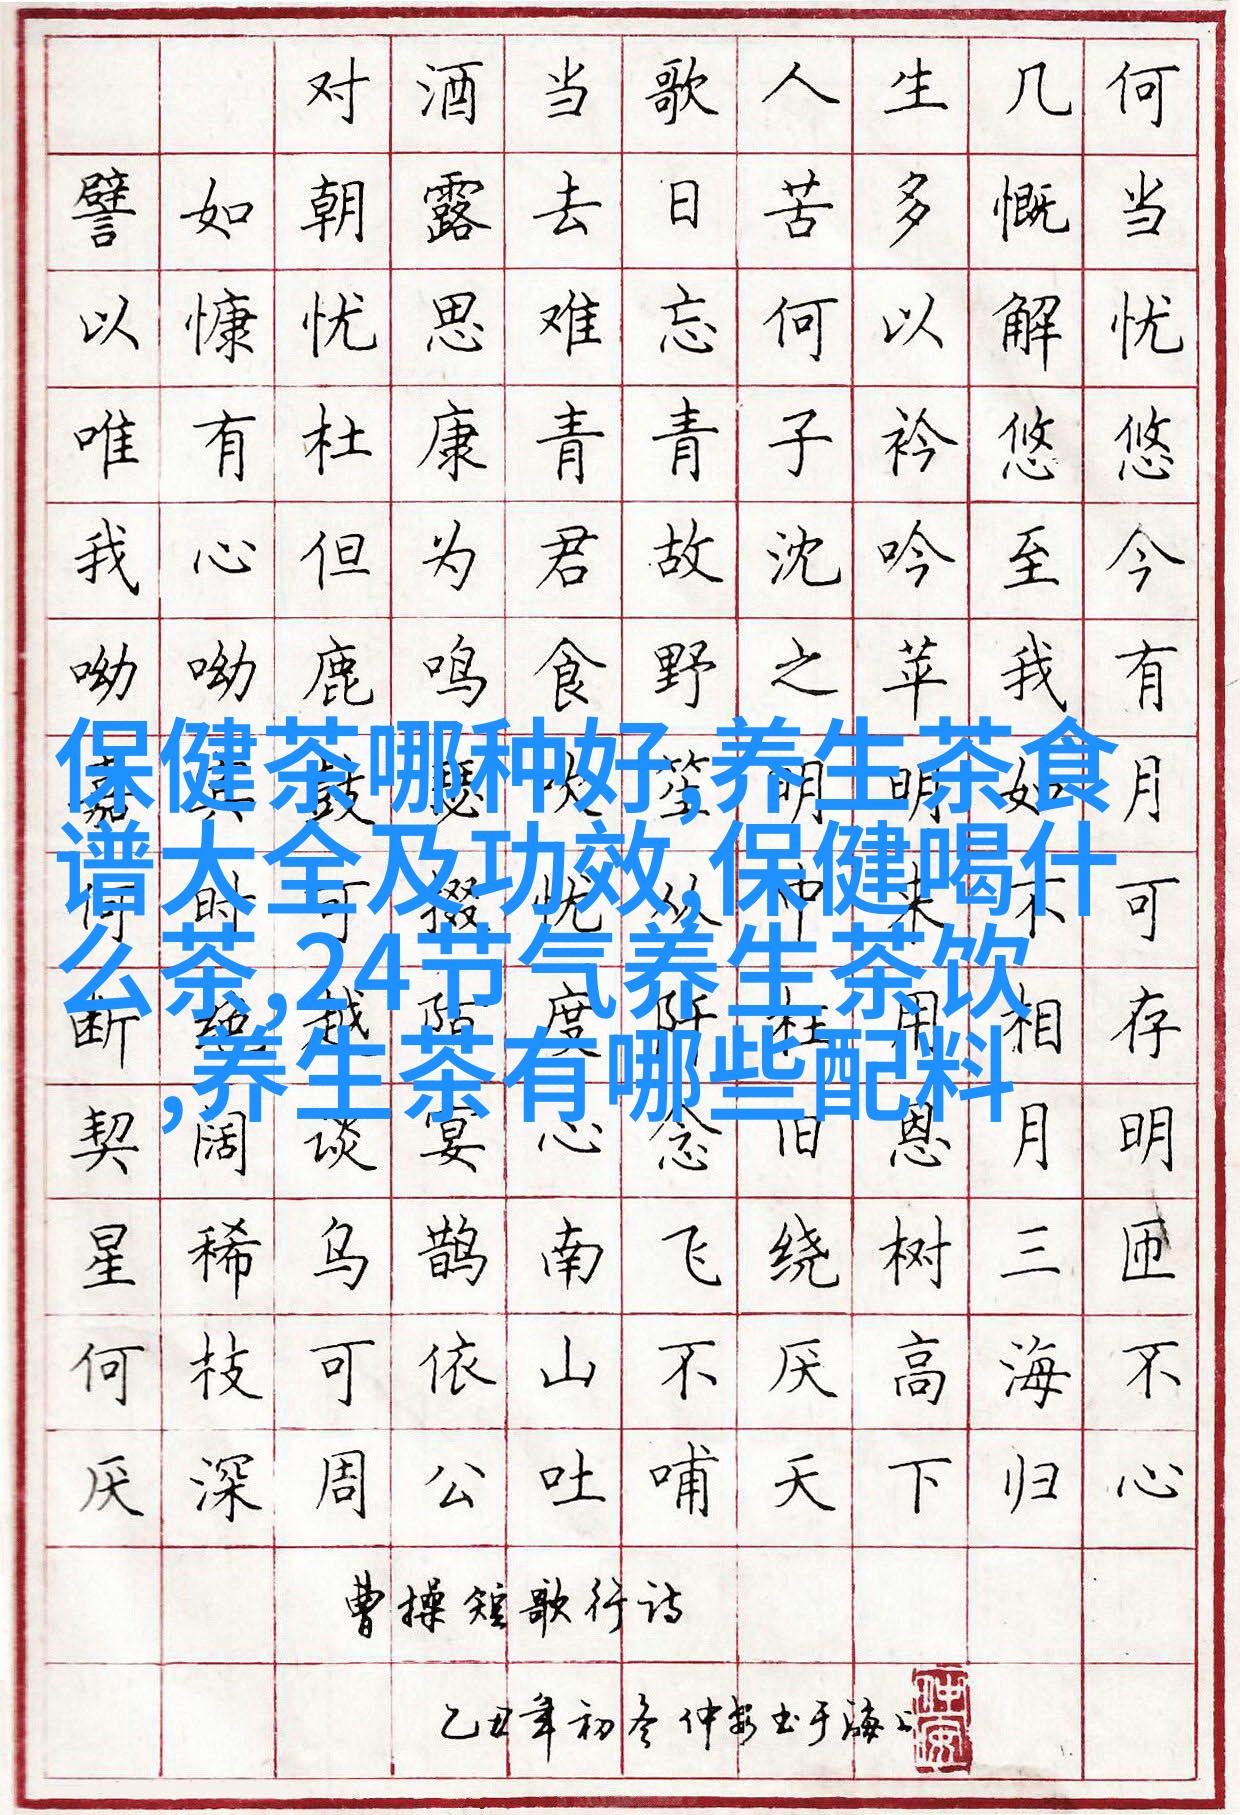 对酒当歌人生几何
譬如朝露去日苦多慨当
以慷忧思难忘何以解忧
唯有杜康青青子衿悠悠
我心但为君故沈吟至今
呦呦鹿鸣食野之苹我有
嘉宾鼓瑟吹笙明明如月
何时可掇忧从中来不可
断绝越陌度阡枉用相存
契阔谈宴心念旧恩月明
星稀乌鹊南飞绕树三匝
何枝可依山不厌高海不
厌深周公吐哺天下归心
曹操短歌行诗
乙丑年初冬仲安书于海上
仲安
保健茶哪种好,养生茶食
谱大全及功效,保健喝什
么茶,24节气养生茶饮
,养生茶有哪些配料